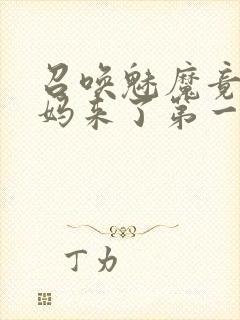 召唤魅魔竟
妈来了第一
丁力